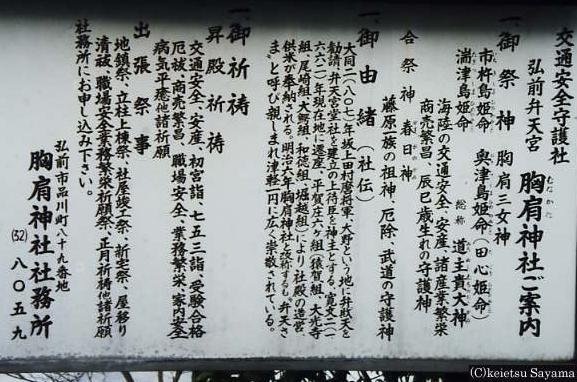 交通安全守護神
弘前弁天宮
胸肩神社ご案内
むなかた
一、御祭神 胸肩三女神
市杵島姫命 奥津島姫命(田心姫命)
湍津島姫命 総称 道主貴大神
海陸の交通安全、安産、諸産業繁栄
商売繁昌、辰巳歳生れの守護神
合祭神 春日神
藤原族の祖神、厄除、武道の守護神
一、御由緒(社伝)
大同二(八〇七)年坂上田村麿将軍、大野という地に弁財天を
勧請、弁天宮堂社を建立の上侍臣を神主とする、寛文二(一
六六二)年現在地に遷座、平賀庄八ヶ組(猿賀組、大光寺
組、尾崎組、大鰐組、和徳組、堀越組)により社殿の造営、
供米が奉納される。明治六年胸肩神社と改称するも「弁天さ
ま」と呼び親しまれ津軽一円に広く崇敬されている。
一、御祈祷
昇殿祈祷
交通安全、安産、初宮詣、七五三詣、受験合格
厄祓、商売繁昌、職場安全、業務繁栄、家内安全
病気平癒他諸祈願
出張祭事
地鎮祭、立柱上棟祭、社屋竣工祭、新宅祭、屋移り
清祓、職場安全業務繁栄祈願祭、正月祈祷他諸祈願
社務所にお申し込み下さい。
弘前市品川町八十九番地
胸肩神社社務所
(32)八〇五九
(C)keietsu Sayama